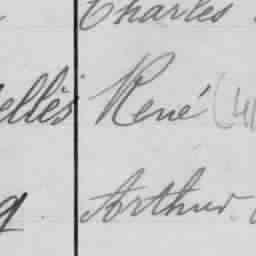 Charles
ellès René (4
g Arthur.